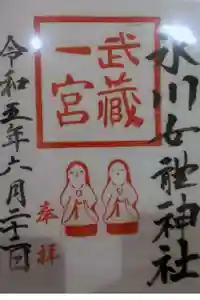 氷川女體神社
武蔵
一宮
奉拝
令和五年六月二十二日